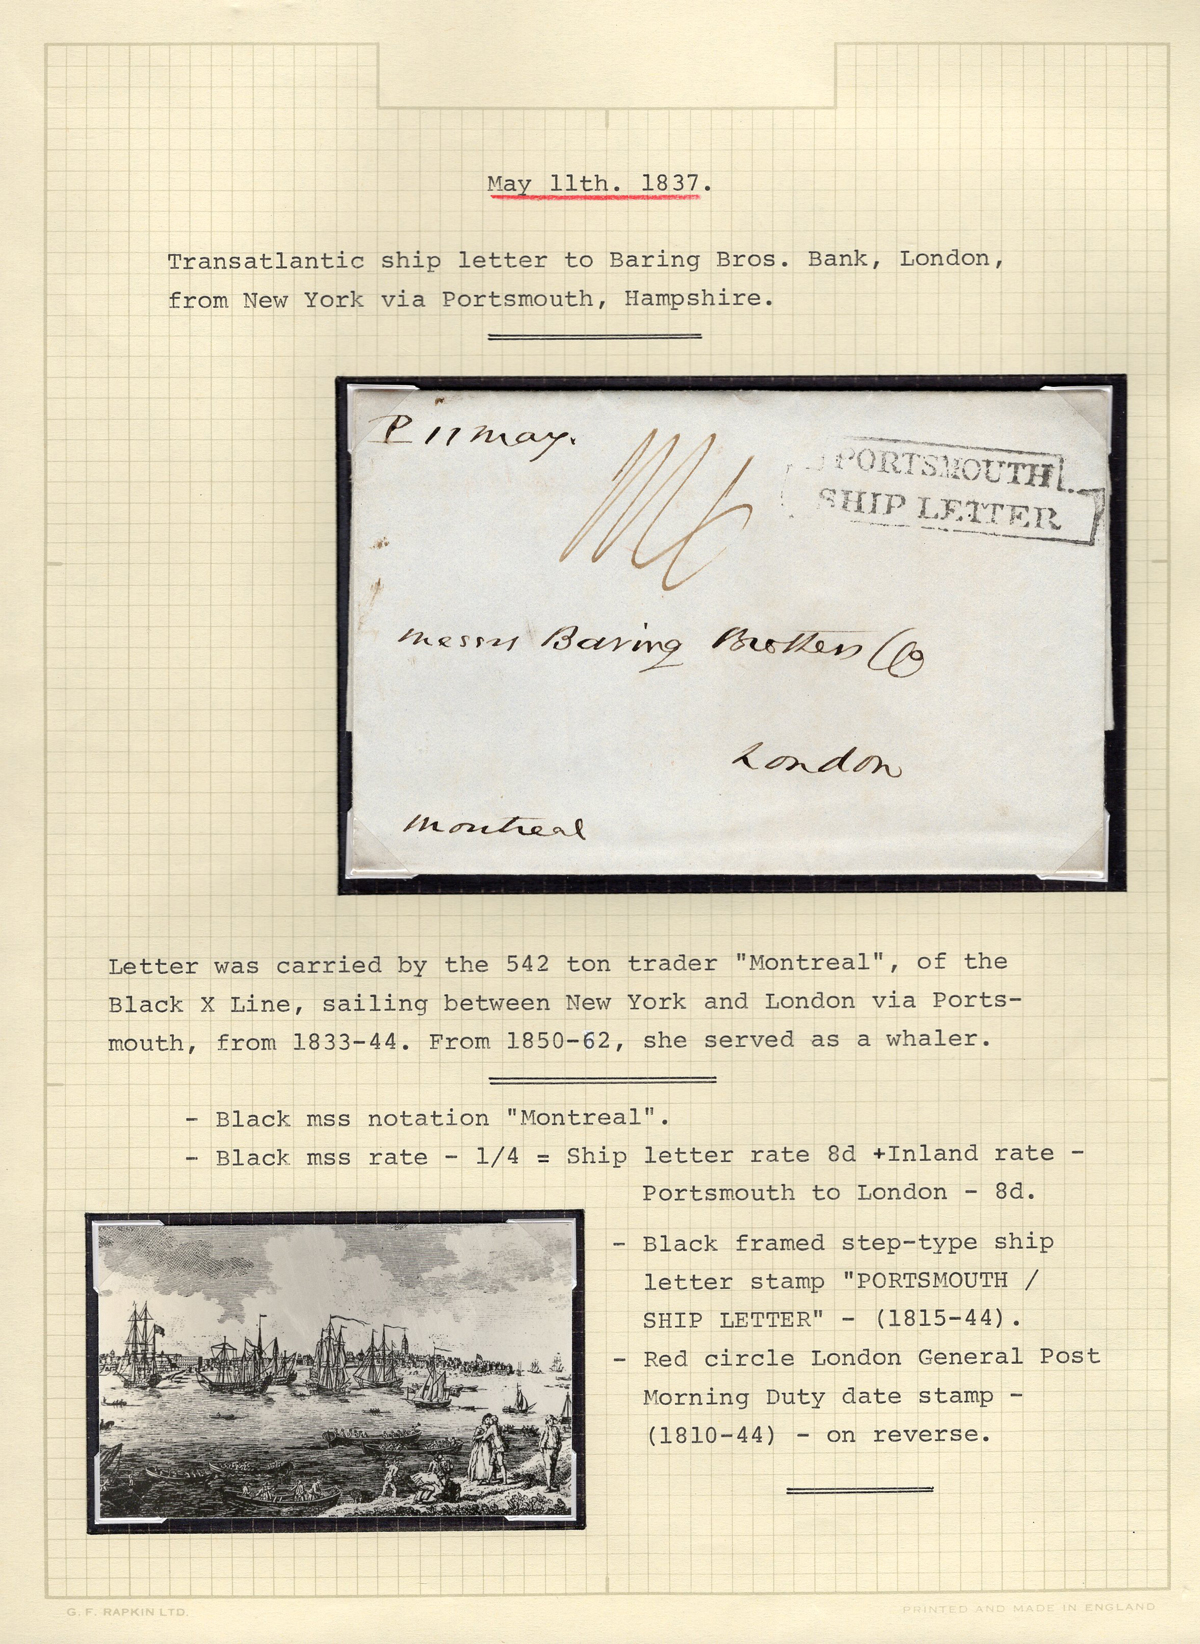 May 11th. 1837.
Transatlantic ship letter to Baring Bros. Bank, London,
from New York via Portsmouth, Hampshire.
P 11 May.
PORTSMOUTH
SHIP LETTER
Messrs Baring Brothers & Co
London
Montreal
Letter was carried by the 542 ton trader "Montreal", of the
Black X Line, sailing between New York and London via Ports-
mouth, from 1833-44. From 1850-62, she served as a whaler.
- Black mss notation "Montreal".
- Black mss rate - 1/4 = Ship letter rate 8d +Inland rate -
Portsmouth to London - 8d.
- Black framed step-type ship
letter stamp "PORTSMOUTH /
SHIP LETTER" - (1815-44).
- Red circle London General Post
Morning Duty date stamp -
(1810-44) - on reverse.
G. F. RAPKIN LTD.
PRINTED AND MADE IN ENGLAND